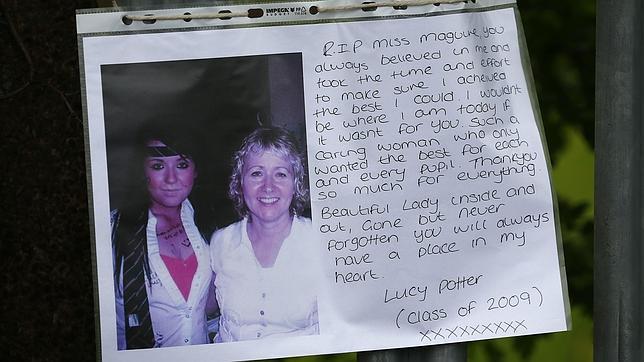 IMPEGA
BUDGET
R.I.P miss maguire, you
always believed in me and
took the time and effort
to make sure I acheived
the best I could. I wouldnt
be where I am today if
it wasnt for you. Such a
caring woman, who only
wanted the best for each
and every pupil. Thankyou
so much for everything.
Beautiful Lady inside and
out, Gone but never
forgotten you will always
have a place in my
heart.
Lucy Potter
(class of 2009)
xxxxxxxxx